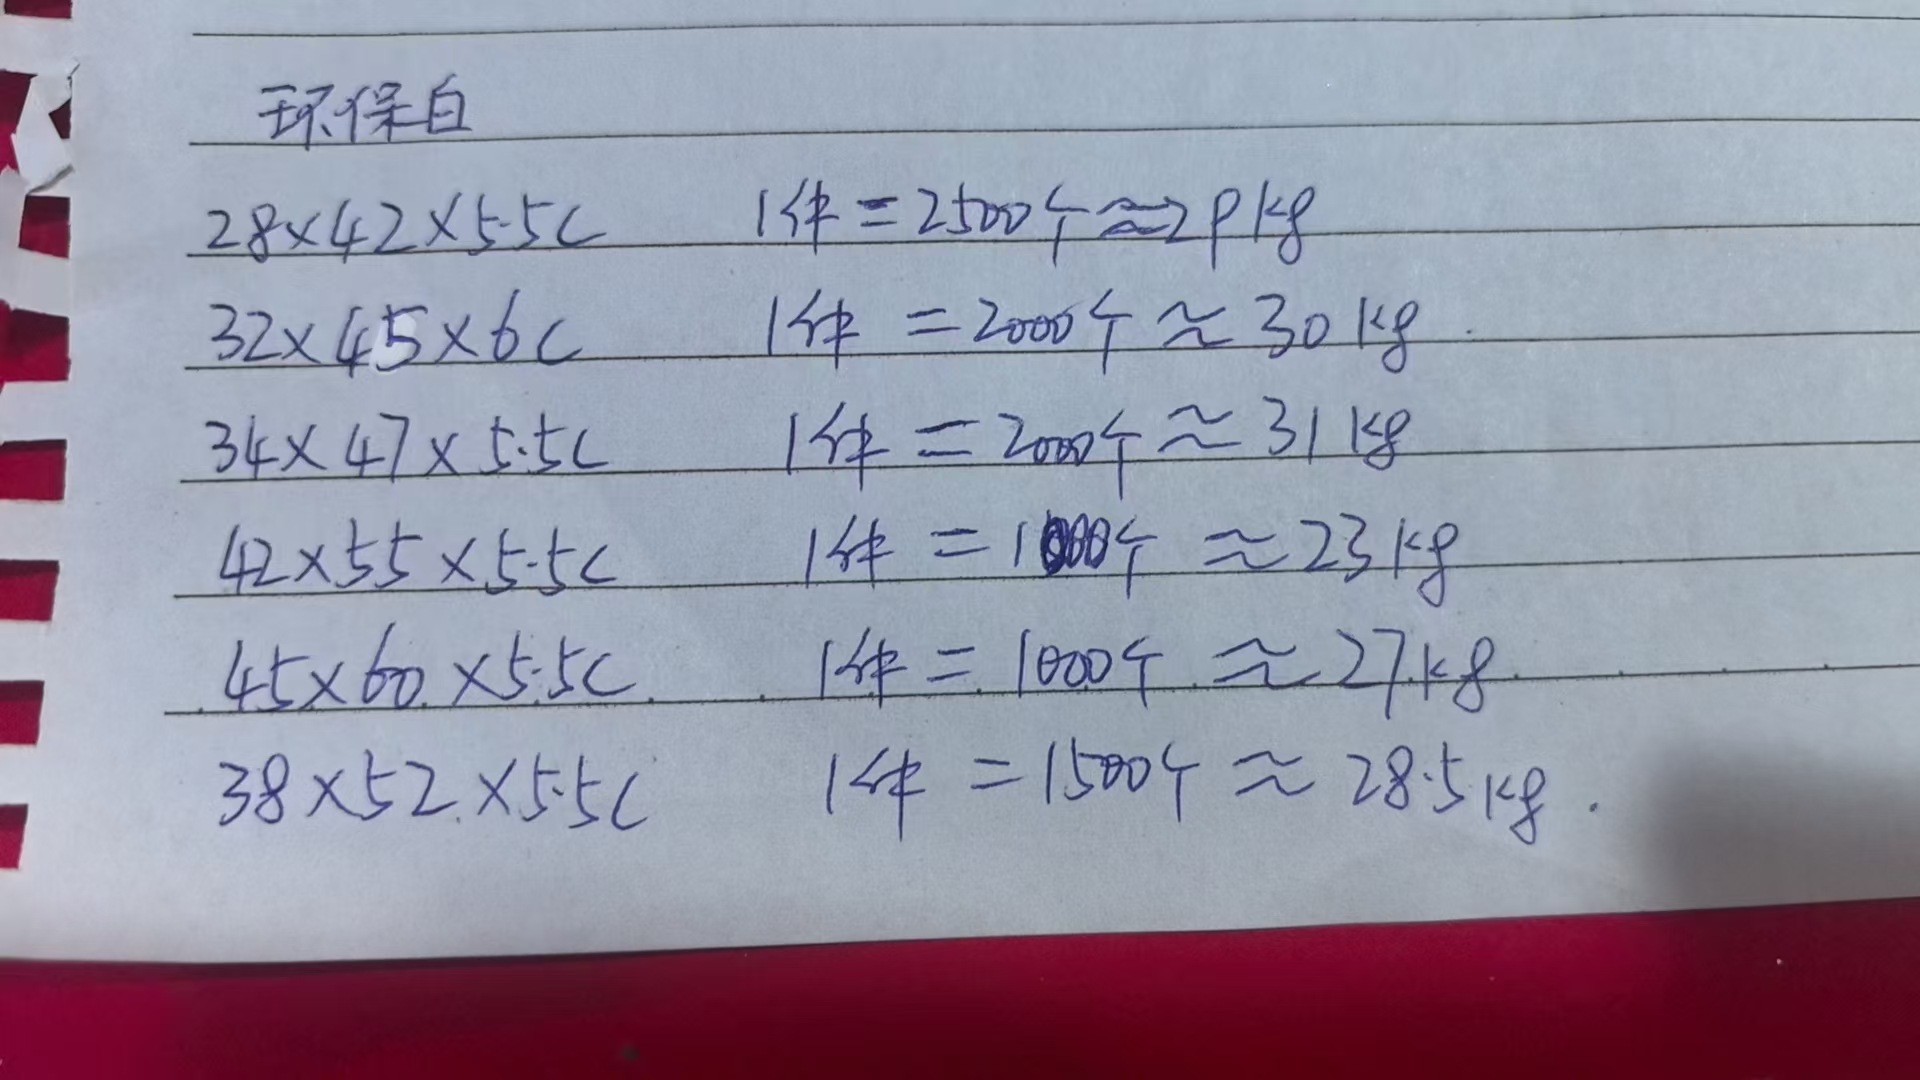 环保白
28×42×5.5C 1件=2500个≈29kg
32×45×6C 1件=2000个≈30kg.
34×47×5.5C 1件=2000个≈31kg
42×55×5.5C 1件=1000个≈23kg
45×60×5.5C 1件=1000个≈27kg
38×52×5.5C 1件=1500个≈28.5kg.